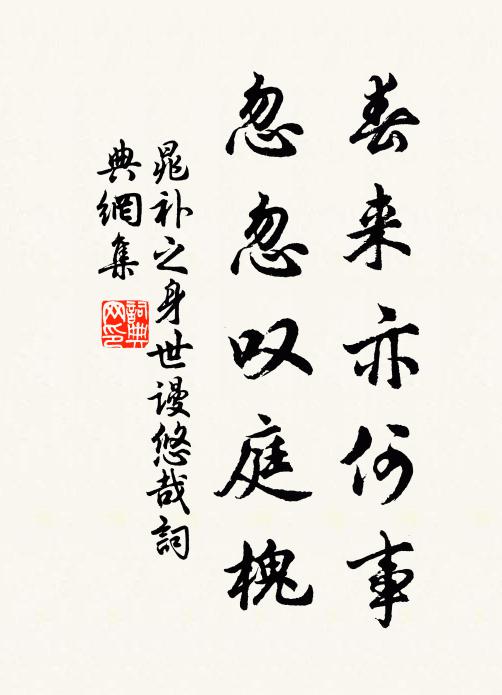 春来亦何事
忽忽叹庭槐
晁补之身世谩悠哉詞
典網集
詞典
网印